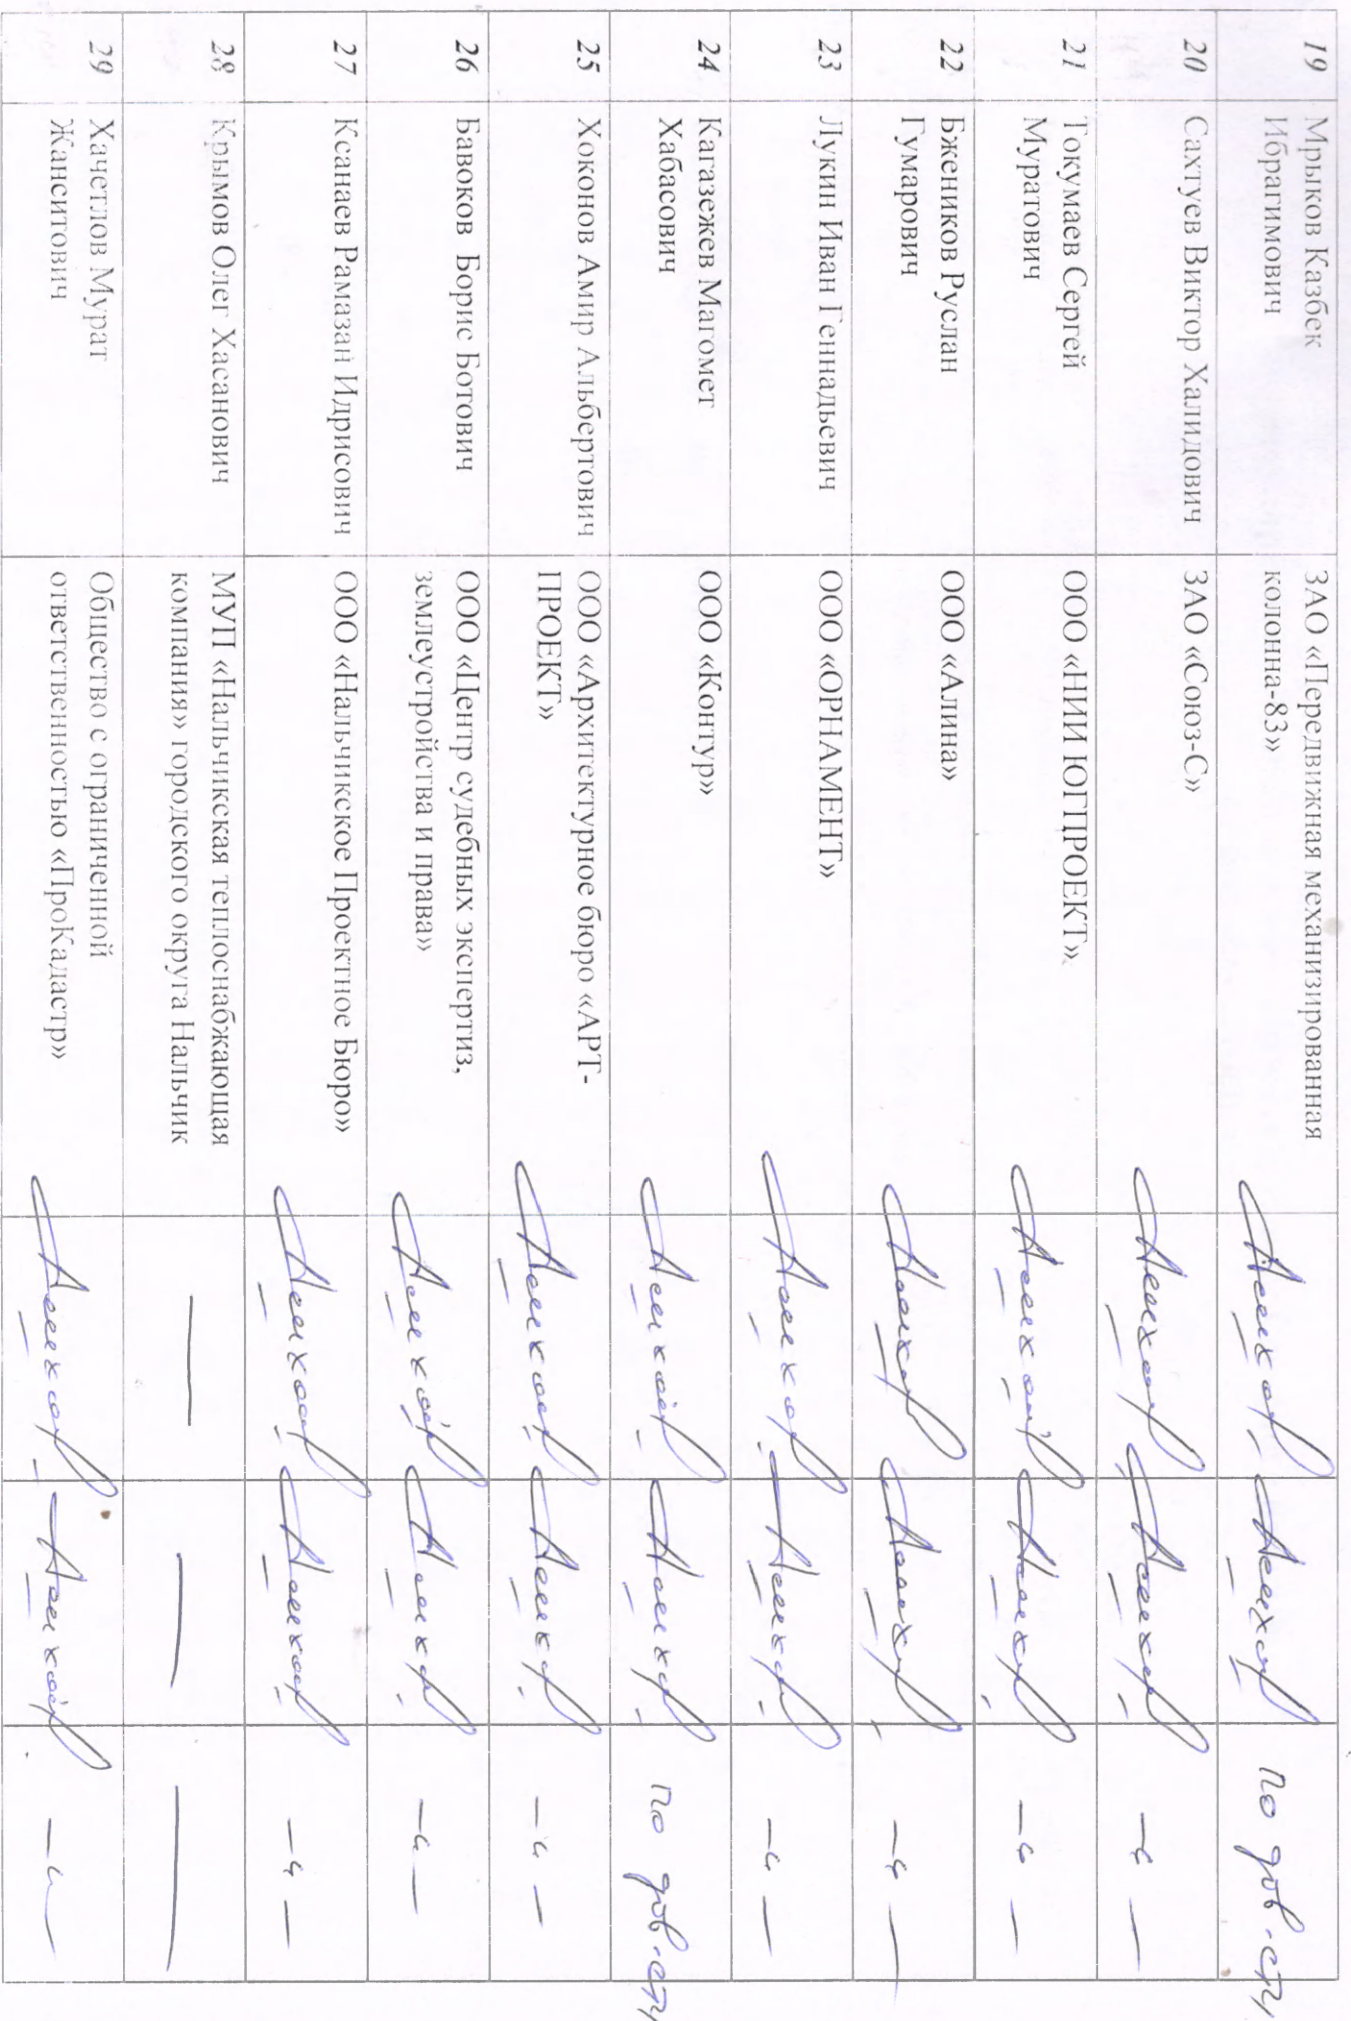 19
Мрыков Казбек
Ибрагимович
ЗАО «Передвижная механизированная
колонна-83»
по дов-сти
20
Сахтуев Виктор Халидович
ЗАО «Союз-С»
—〃—
21
Токумаев Сергей
Муратович
ООО «НИИ ЮГПРОЕКТ»
—〃—
22
Бжеников Руслан
Гумарович
ООО «Алина»
—〃—
23
Лукин Иван Геннадьевич
ООО «ОРНАМЕНТ»
—〃—
24
Кагазежев Магомет
Хабасович
ООО «Контур»
по дов-сти
25
Хоконов Амир Альбертович
ООО «Архитектурное бюро «АРТ-
ПРОЕКТ»
—〃—
26
Бавоков Борис Ботович
ООО «Центр судебных экспертиз,
землеустройства и права»
—〃—
27
Ксанаев Рамазан Идрисович
ООО «Нальчикское Проектное Бюро»
—〃—
28
Крымов Олег Хасанович
МУП «Нальчикская теплоснабжающая
компания» городского округа Нальчик
29
Хачетлов Мурат
Жанситович
Общество с ограниченной
ответственностью «ПроКадастр»
—〃—